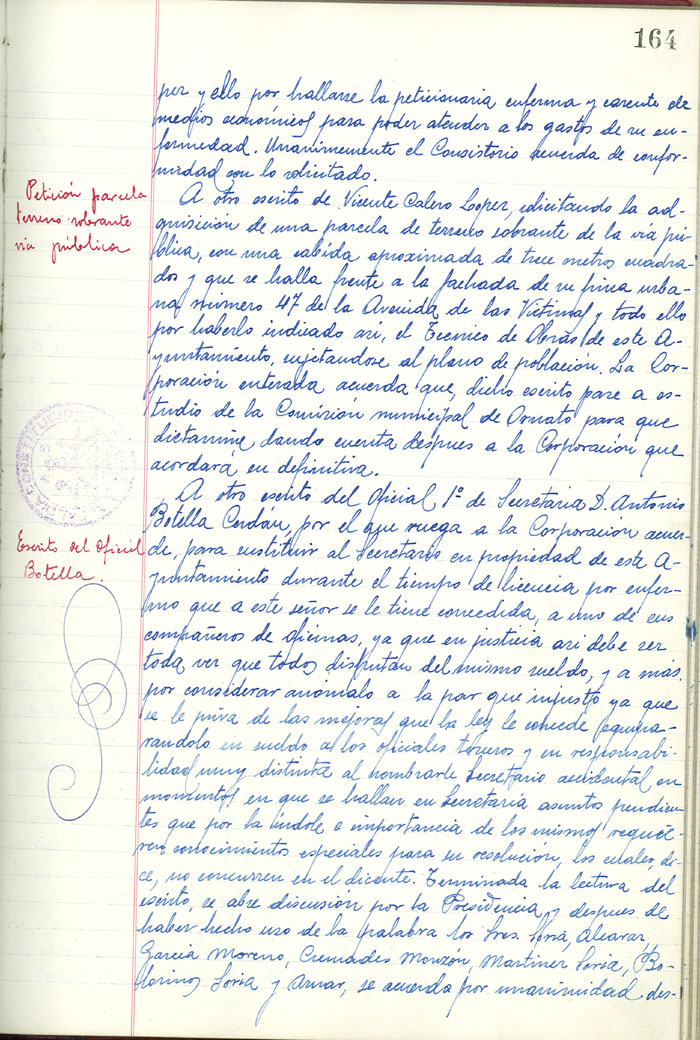 164
per y ello por hallarse la peticionaria enferma y carente de
medios económicos para poder atender a los gastos de su en-
fermedad. Unanimemente el Consistorio acuerda de confor-
midad con lo solicitado.
Petición parcela
terreno sobrante
via pública
A otro escrito de Vicente Calero Lopez, solicitando la ad-
quisición de una parcela de terreno sobrante de la vía pú-
blica, con una cabida aproximada de trece metros cuadra-
dos y que se halla frente a la fachada de su finca urba-
na número 47 de la Avenida de las Victimas y todo ello
por haberlo indicado asi, el Tecnico de Obras de este A-
yuntamiento, sujetandose al plano de población. La Cor-
poración enterada acuerda que, dicho escrito pase a es-
tudio de la Comisión municipal de Ornato para que
dictamine dando cuenta despues a la Corporación que
acordará en definitiva.
Escrito del Oficial
Botella.
A otro escrito del Oficial 1º de Secretaria D. Antonio
Botella Cerdán, por el que ruega a la Corporación acuer-
de, para sustituir al Secretario en propiedad de este A-
yuntamiento durante el tiempo de licencia por enfer-
mo que a este señor se le tiene concedida, a uno de sus
compañeros de oficinas, ya que en justicia asi debe ser
toda vez que todos disfrutan del mismo sueldo, y a mas
por considerar anómalo a la par que injusto ya que
se le priva de las mejoras que la ley le concede equipa-
randolo en sueldo a los oficiales terceros y en responsabi-
lidad muy distinta al nombrarle Secretario accidental en
momentos en que se hallan en Secretaria asuntos pendien-
tes que por la índole e importancia de los mismos requie-
ren conocimientos especiales para su resolución, los cuales, di-
ce, no concurren en el dicente. Terminada la lectura del
escrito, se abre discusión por la Presidencia y despues de
haber hecho uso de la palabra los Sres. Alcaraz,
García Moreno, Cremades Monzón, Martinez Soria,
Soria y Aznar, se acuerda por unanimidad des-